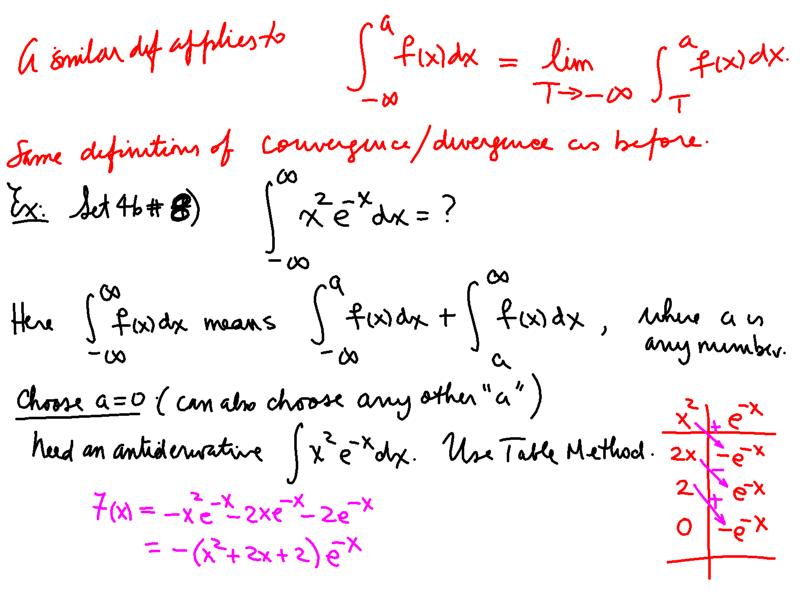 A similar def applies to ∫_{-∞}^{a} f(x)dx = lim_{T→-∞} ∫_{T}^{a} f(x)dx.
Same definitions of convergence/divergence as before.
Ex: Set 4b # 8) ∫_{-∞}^{∞} x²e^{-x}dx = ?
Here ∫_{-∞}^{∞} f(x)dx means ∫_{-∞}^{a} f(x)dx + ∫_{a}^{∞} f(x)dx, where a is
any number.
Choose a=0. (can also choose any other "a")
Need an antiderivative ∫x²e^{-x}dx. Use Table Method.
x² | + e^{-x}
2x | - -e^{-x}
2 | + e^{-x}
0 | -e^{-x}
F(x) = -x²e^{-x} - 2xe^{-x} - 2e^{-x}
= -(x²+2x+2)e^{-x}